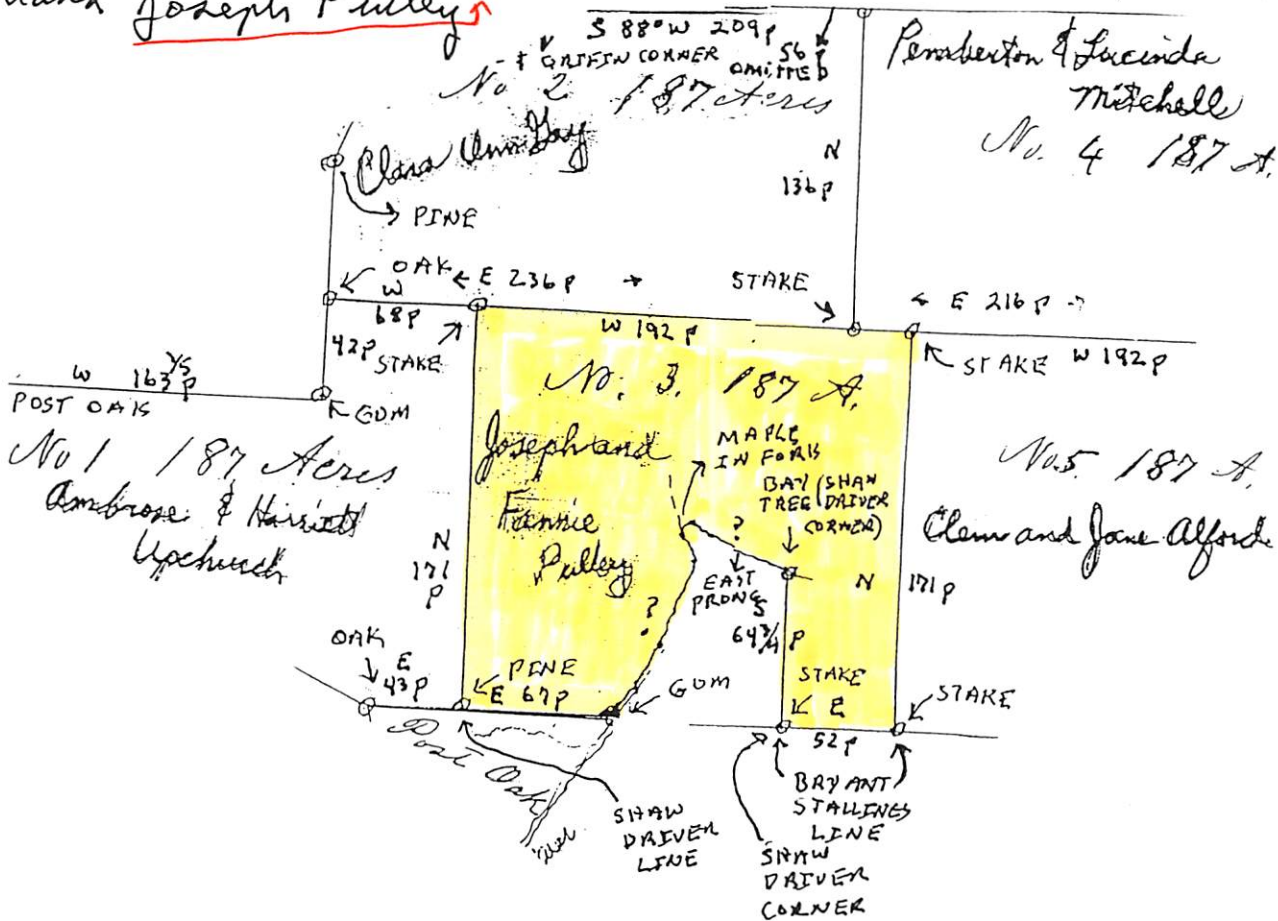 Joseph Pulley
S 88° W 209 P
& GRIFFIN CORNER
56 P
OMITTED
No 2 187 Acres
Pemberton & Lucinda
Mitchell
No. 4 187 A.
Clara Ann Gay
N
136 P
PINE
OAK
E 236 P
STAKE
E 216 P
W
68 P
W 192 P
42 P
STAKE
STAKE
W 192 P
W 163 1/5 P
POST OAKS
GUM
No 1 187 Acres
Ambrose & Harriett
Upchurch
No. 3. 187 A.
Joseph and
Fannie
Pulley
MAPLE
IN FORK
BAY (SHAW
TREE (DRIVER
CORNER)
No. 5. 187 A.
Clem and Jane Alford
?
EAST
PRONG
N
171
P
N 171 P
S
64 3/4 P
?
OAK
E
43 P
PINE
E 67 P
GUM
STAKE
E
52 P
STAKE
Post Oak
SHAW
DRIVER
LINE
BRYANT
STALLINGS
LINE
SHAW
DRIVER
CORNER